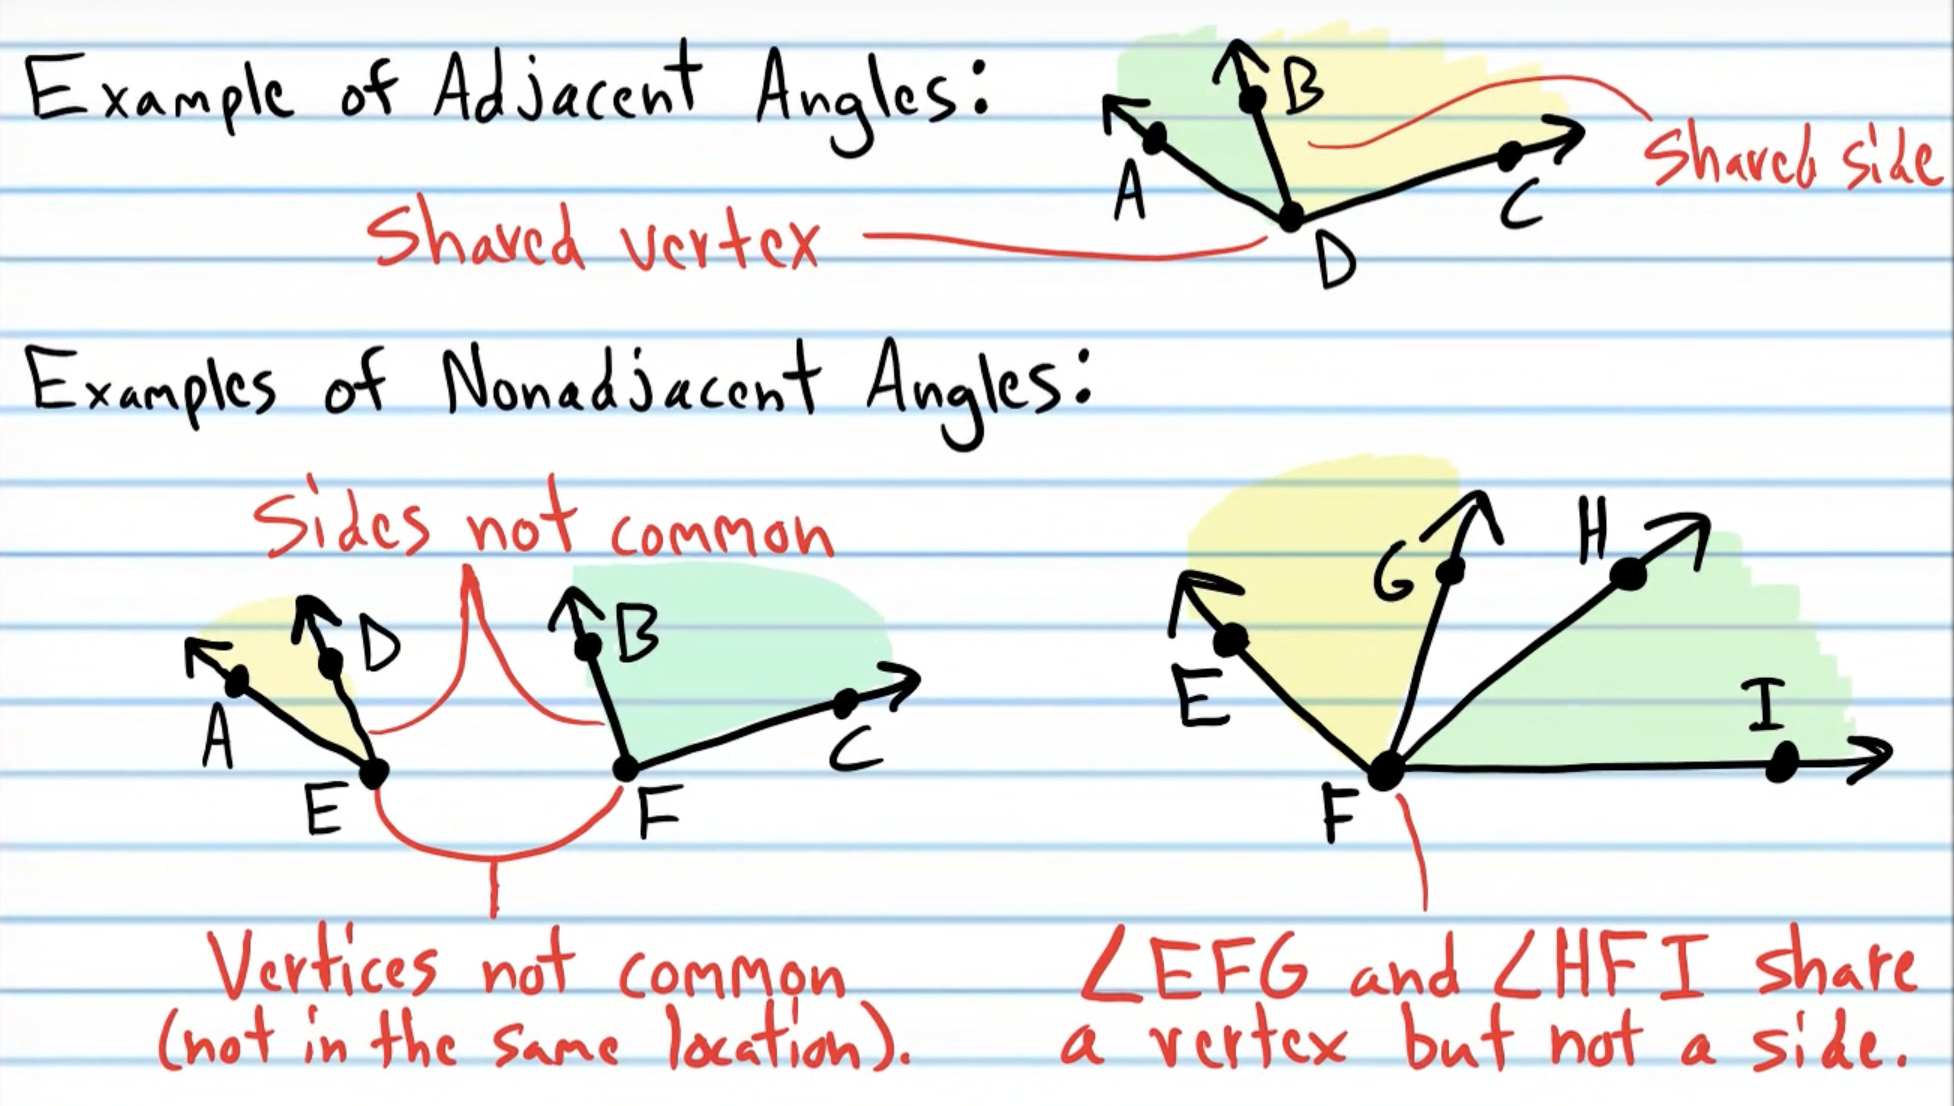 Example of Adjacent Angles:
B
Shared side
A
C
Shared vertex
D
Examples of Nonadjacent Angles:
Sides not common
D
B
A
C
E
F
G
H
E
I
F
Vertices not common
(not in the same location).
∠EFG and ∠HFI share
a vertex but not a side.